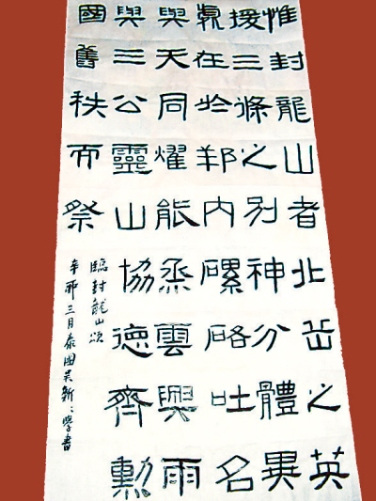 惟封龍山者北岳之英
援三條之別神分體異
處在於邦內磥硌吐名
與天同燿能烝雲興雨
與三公靈山協德齊勳
國舊秩而祭
臨封龍山頌
辛卯三月吳新學書